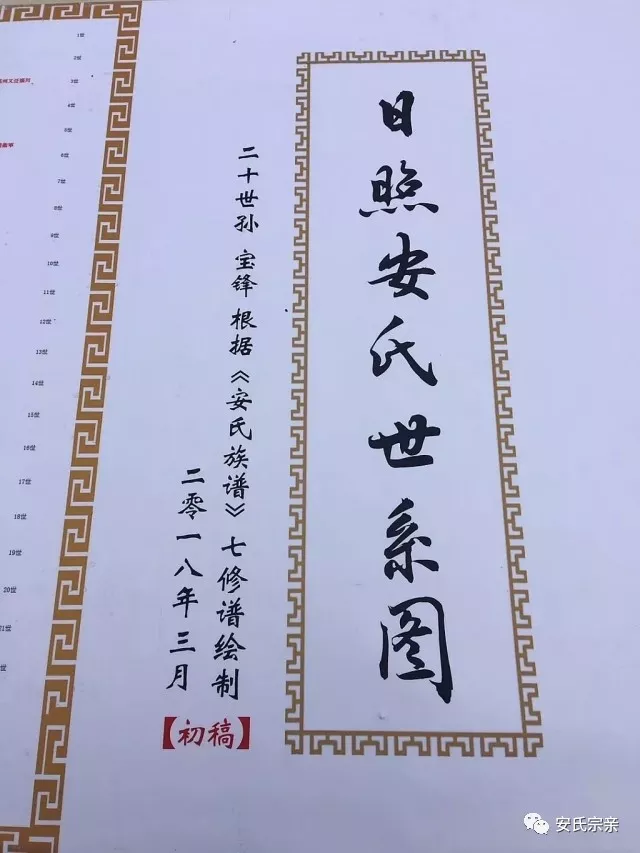 日照安氏世系图
二十世孙 宝锋 根据《安氏族谱》七修谱绘制
二零一八年三月
【初稿】
1世
2世
3世
4世
5世
6世
7世
8世
9世
10世
11世
12世
13世
14世
15世
16世
17世
18世
19世
20世
21世
安氏宗亲